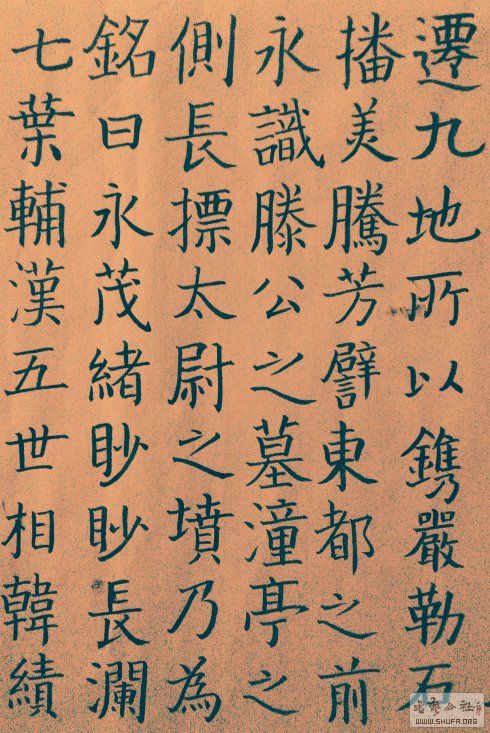 遷九地所以鐫嚴勒石
播美騰芳譬東都之前
永識滕公之墓潼亭之
側長摽太尉之墳乃為
銘曰永茂緒眇眇長瀾
七葉輔漢五世相韓績
WWW.SHUFA.ORG